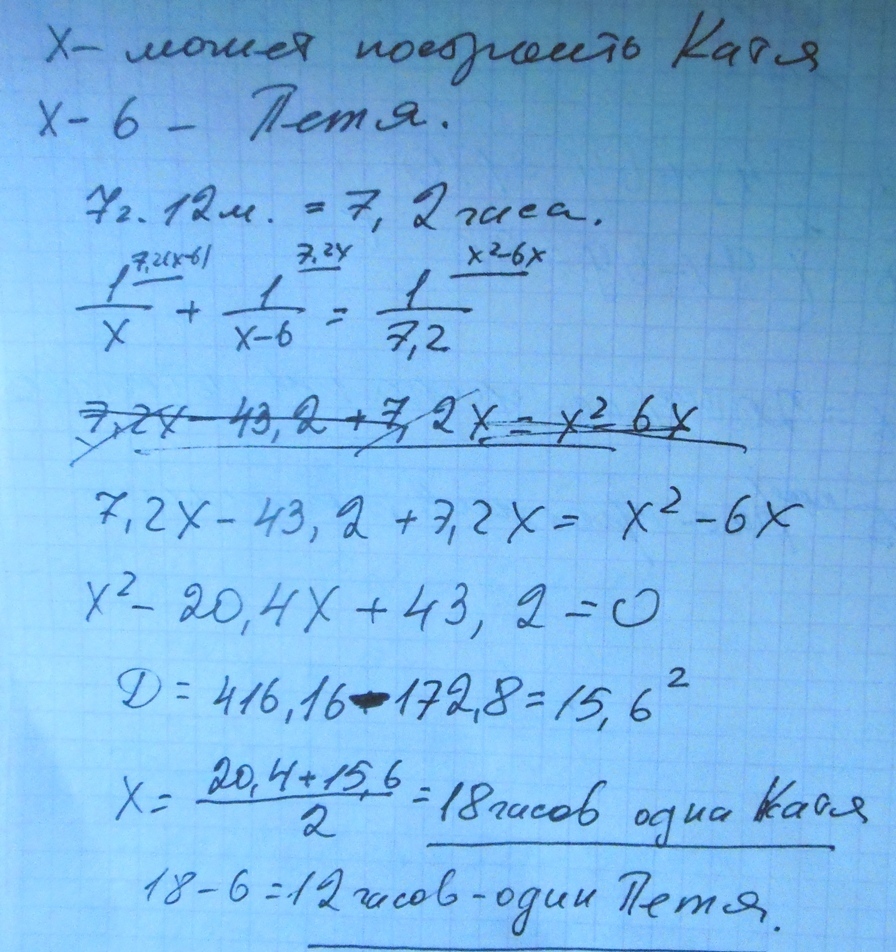 X – может построить Катя
X – 6 – Петя.
7г. 12м. = 7,2 часа.
7,2(x-6) 7,2x x²-6x
1/x + 1/x-6 = 1/7,2
7,2x - 43,2 + 7,2x = x² - 6x
7,2x - 43,2 + 7,2x = x² - 6x
x² - 20,4x + 43,2 = 0
D = 416,16 - 172,8 = 15,6²
x = 20,4+15,6/2 = 18 часов одна Катя
18-6=12 часов - один Петя.